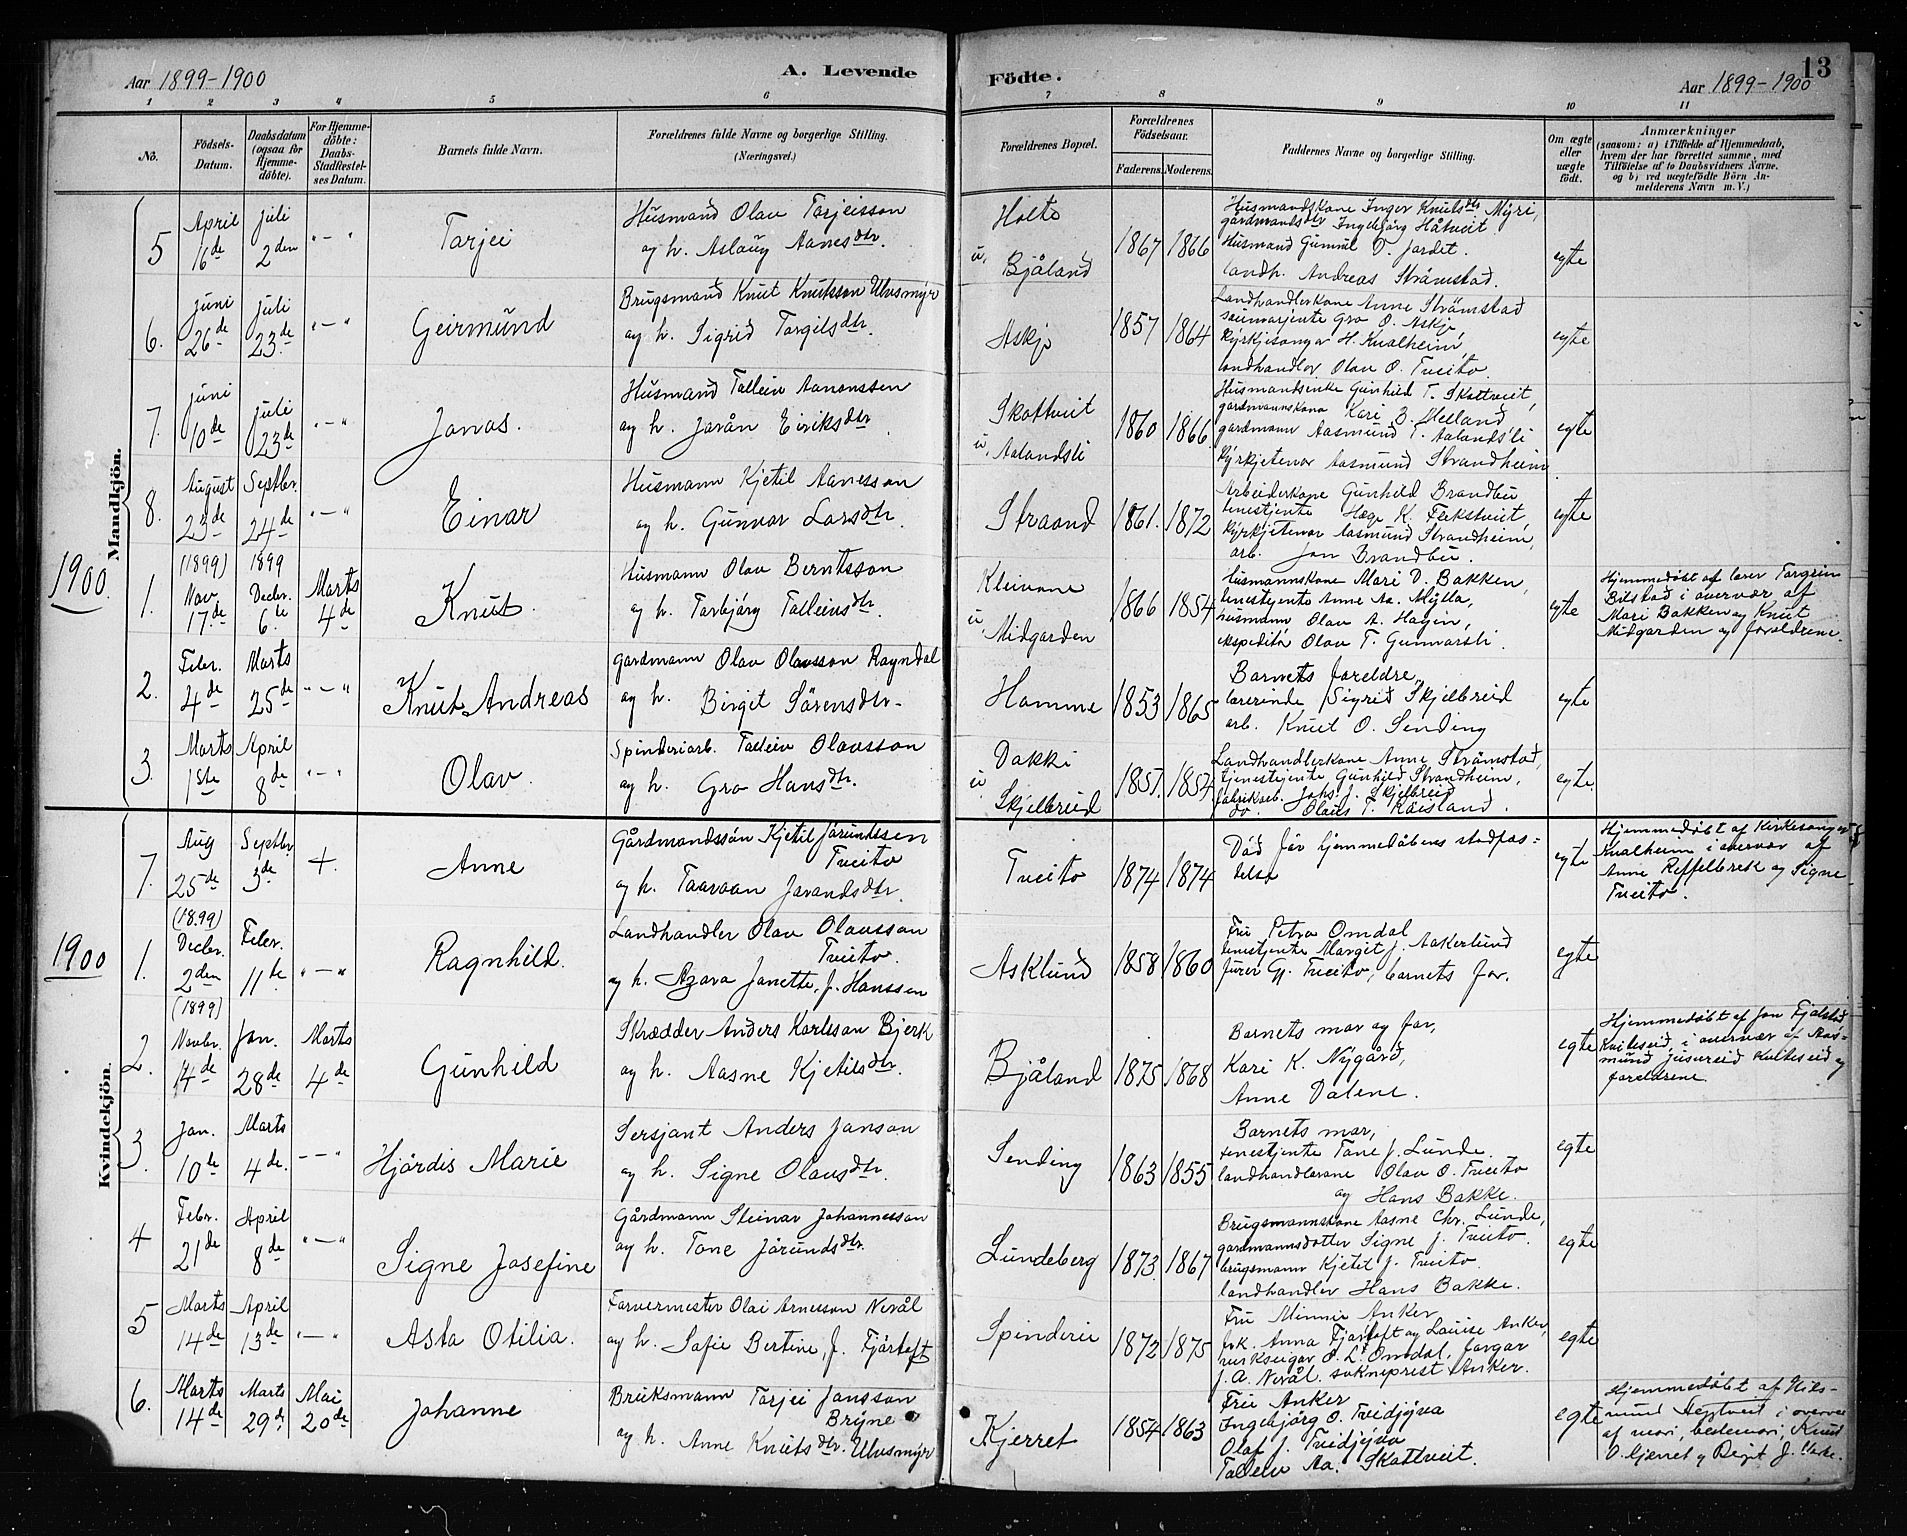 Aar 1899-1900
A. Levende
Födte.
Aar 1899-1900
13
1 2 3 4 5 6 7 8 9 10 11
No.
Födsels-
Datum.
Daabsdatum
(ogsaa for
Hjemme-
döbte).
For Hjemme-
döbte:
Daabs-
Stadfæstel-
ses Datum.
Barnets fulde Navn.
Forældrenes fulde Navne og borgerlige Stilling.
(Næringsvei.)
Forældrenes Bopæl.
Forældrenes
Födselsaar.
Faderens. Moderens.
Faddernes Navne og borgerlige Stilling.
Om ægte
eller
uægte
födt.
Anmærkninger
(saasom: a) i Tilfælde af Hjemmedaab,
hvem der har forrettet samme, med
Tilföielse af to Daabsvidners Navne.
og b) ved uægtefödte Börn An-
melderens Navn m. V.)
Mandkjön.
5
April
16de
Juli
2den
"-"
Tarjei
Husmand Olav Tarjeisson
og h. Aslaug Aanesdtr.
Holte
u. Bjåland
1867 1866
Husmandskone Inger Knutsdtr Myri,
gårdmandsdtr Ingebjørg Håtveit
Husmand Gunnul D. Jordet.
landh. Andreas Strømstad.
egte
6.
Juni
26de
Juli
23de
"-"
Geirmund
Brugsmand Knut Knutsson Ulvsmyr
og h. Sigrid Torgilsdtr.
Askje
1857 1864
Landhandlerkone Anne Strømstad
saumarjente Gro O. Askje,
Kyrkjesongar H. Kvalheim,
landhandler Olav O. Tveito.
egte
7.
Juni
10de
Juli
23de
"-"
Jonas.
Husmand Talleiv Aanonssen
og h. Jorån Eiriksdtr
Skottveit
u. Aalandsli
1860 1866
Husmandsenke Gunhild T. Skottveit,
gardmannskona Kari B. Melland
gardmann Aasmund T. Aalandsli
Kyrkjetenar Aasmund Strandheim
egte
8.
August
23de
Septbr.
24de
"-"
Einar
Husmann Kjetil Aanesson
og h. Gunvor Larsdtr.
Straand
1861. 1872
Arbeiderkone Gunhild Brandbu
tenestjente Hæge K. Flekstveit,
Kyrkjetenar Aasmund Strandheim,
arb. Jon Brandbu.
egte
1900
1.
(1899)
Nov.
17.de
1899
Decbr.
6.te
Marts
4de
Knut.
Husmann Olav Berntsson
og h. Torbjørg Talleivsdtr.
Kleivane
u Midgarden
1866 1854
Husmannskone Mari D. Bakken,
tenestjente Anne Aa. Mylla,
husmann Olav A. Hagin,
ekspeditør Olav T. Gunnarsli.
egte
Hjemmedøbt af lærer Torgrim
Bilstad i overvær af
Mari Bakken og Knut
Midgarden og foreldrene.
2.
Febr.
4de
Marts
25de
"-"
Knut Andreas
Gardmann Olav Olavsson Rayndal
og h. Birgit Sørensdtr.
Hamme
1853 1865
Barnets foreldre,
lærerinde Sigrid Skjelbreid
arb. Knut O. Sending
egte
3.
Marts
1ste
April
8de
"-"
Olav.
Spinderiarb. Talleiv Olavsson
og h. Gro Hansdtr.
Dokki
u Skjelbreid
1851. 1854
Landhandlerkone Anne Strømstad,
tjenestjente Gunhild Strandheim,
fabrikarb. Johs. J. Skjelbreid
do Olaus T. Kåisland.
egte.
Kvindekjön.
7.
Aug
25de
Septbr.
3de
+.
Anne
Gårdmandssøn Kjetil Jørundssen
Tveito
og h. Taaraan Jorandsdtr.
Tveito
1874 1874
Død før hjemmedåbens stadfæs=
telse
egte
Hjemmedøbt af Kirkesanger
Kvalheim i overvær af
Anne Reffelbrek og Signe
Tveito.
1900
1.
(1899)
Decbr.
2den
Febr.
11te
"-"
Ragnhild.
Landhandler Olav Olavsson
Tveito.
og h. Azora Janette, f. Hanssen
Asklund
1858 1860
Fru Petra Omdal
tenestjente Margit J. Aakerlund
furer Gj. Tveito, barnets far.
egte
2.
(1899)
Novbr.
14de
Jan.
28de
Marts
4de
Gunhild
Skrædder Anders Karlsson Bjerk
og h. Aasne Kjetilsdtr.
Bjåland
1875 1868
Barnets mor og far,
Kari K. Nygård,
Anne Dalene.
egte
Hjemmedøbt af Jon Fjalstad
Kviteseid, i overvær af Aas=
mund Kviteseid og
foreldrene.
3.
Jan.
10de
Marts
4de.
"-"
Hjørdis Marie
Sersjant Anders Janson
og h. Signe Olavsdtr.
Sending
1863 1855
Barnets mor,
tenestjente Tone J. Lunde.
landhandlarane Olav O. Tveito
og Hans Bakke.
egte
4
Febr.
21de
April
8de
"-"
Signe Josefine
Gårdmann Steinar Johannesson
og h. Tone Jørundsdtr.
Lundeberg
1873. 1867
Brugsmannskone Aasne Chr. Lunde,
gardmannsdotter Signe J. Tveito.
brugsmann Kjetil J. Tveito.
landhandler Hans Bakke.
egte
5
Marts
14de
April
13de
"-"
Asta Otilia.
Farvermester Olai Arnesson Nerål
og h. Sofie Bertine, f. Fjørtoft
Spinderie
1872 1875
Fru Minnie Anker,
frk. Anna Fjørtoft og Louise Anker,
verkseigar O. L. Omdal, fargar
J. A. Nerål. sokneprest Anker.
egte
6.
Marts
14de
Marts
29de
Mai
20de
Johanne
Bruksmann Tarjei Jansson
Bryne
og h. Anne Knutsdtr. Ulvsmyr
Kjerret
1854 1863
Fru Anker
Ingebjørg O. Tveidjyva
Olaf J. Tveidjyva
Talleiv Aa. Skottveit.
egte
Hjemmedøbt af Nils-
mund Heptveit i overvær
af mori, bestemori, Knud
O. Kjerret og Birgit J.